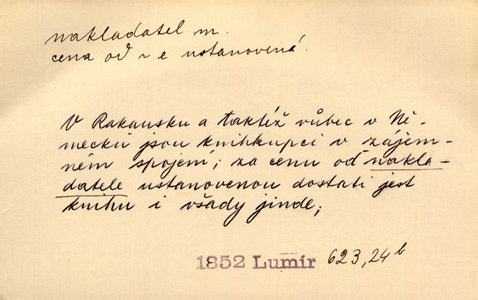 nakladatel m.
cena od n-e ustanovená.
V Rakousku a taktéž vůbec v Ně-
mecku jsou knihkupci v zájem-
ném spojení; za cenu od nakla-
datele ustanovenou dostati jest
knihu i všady jinde;
1852 Lumír 623,24 b